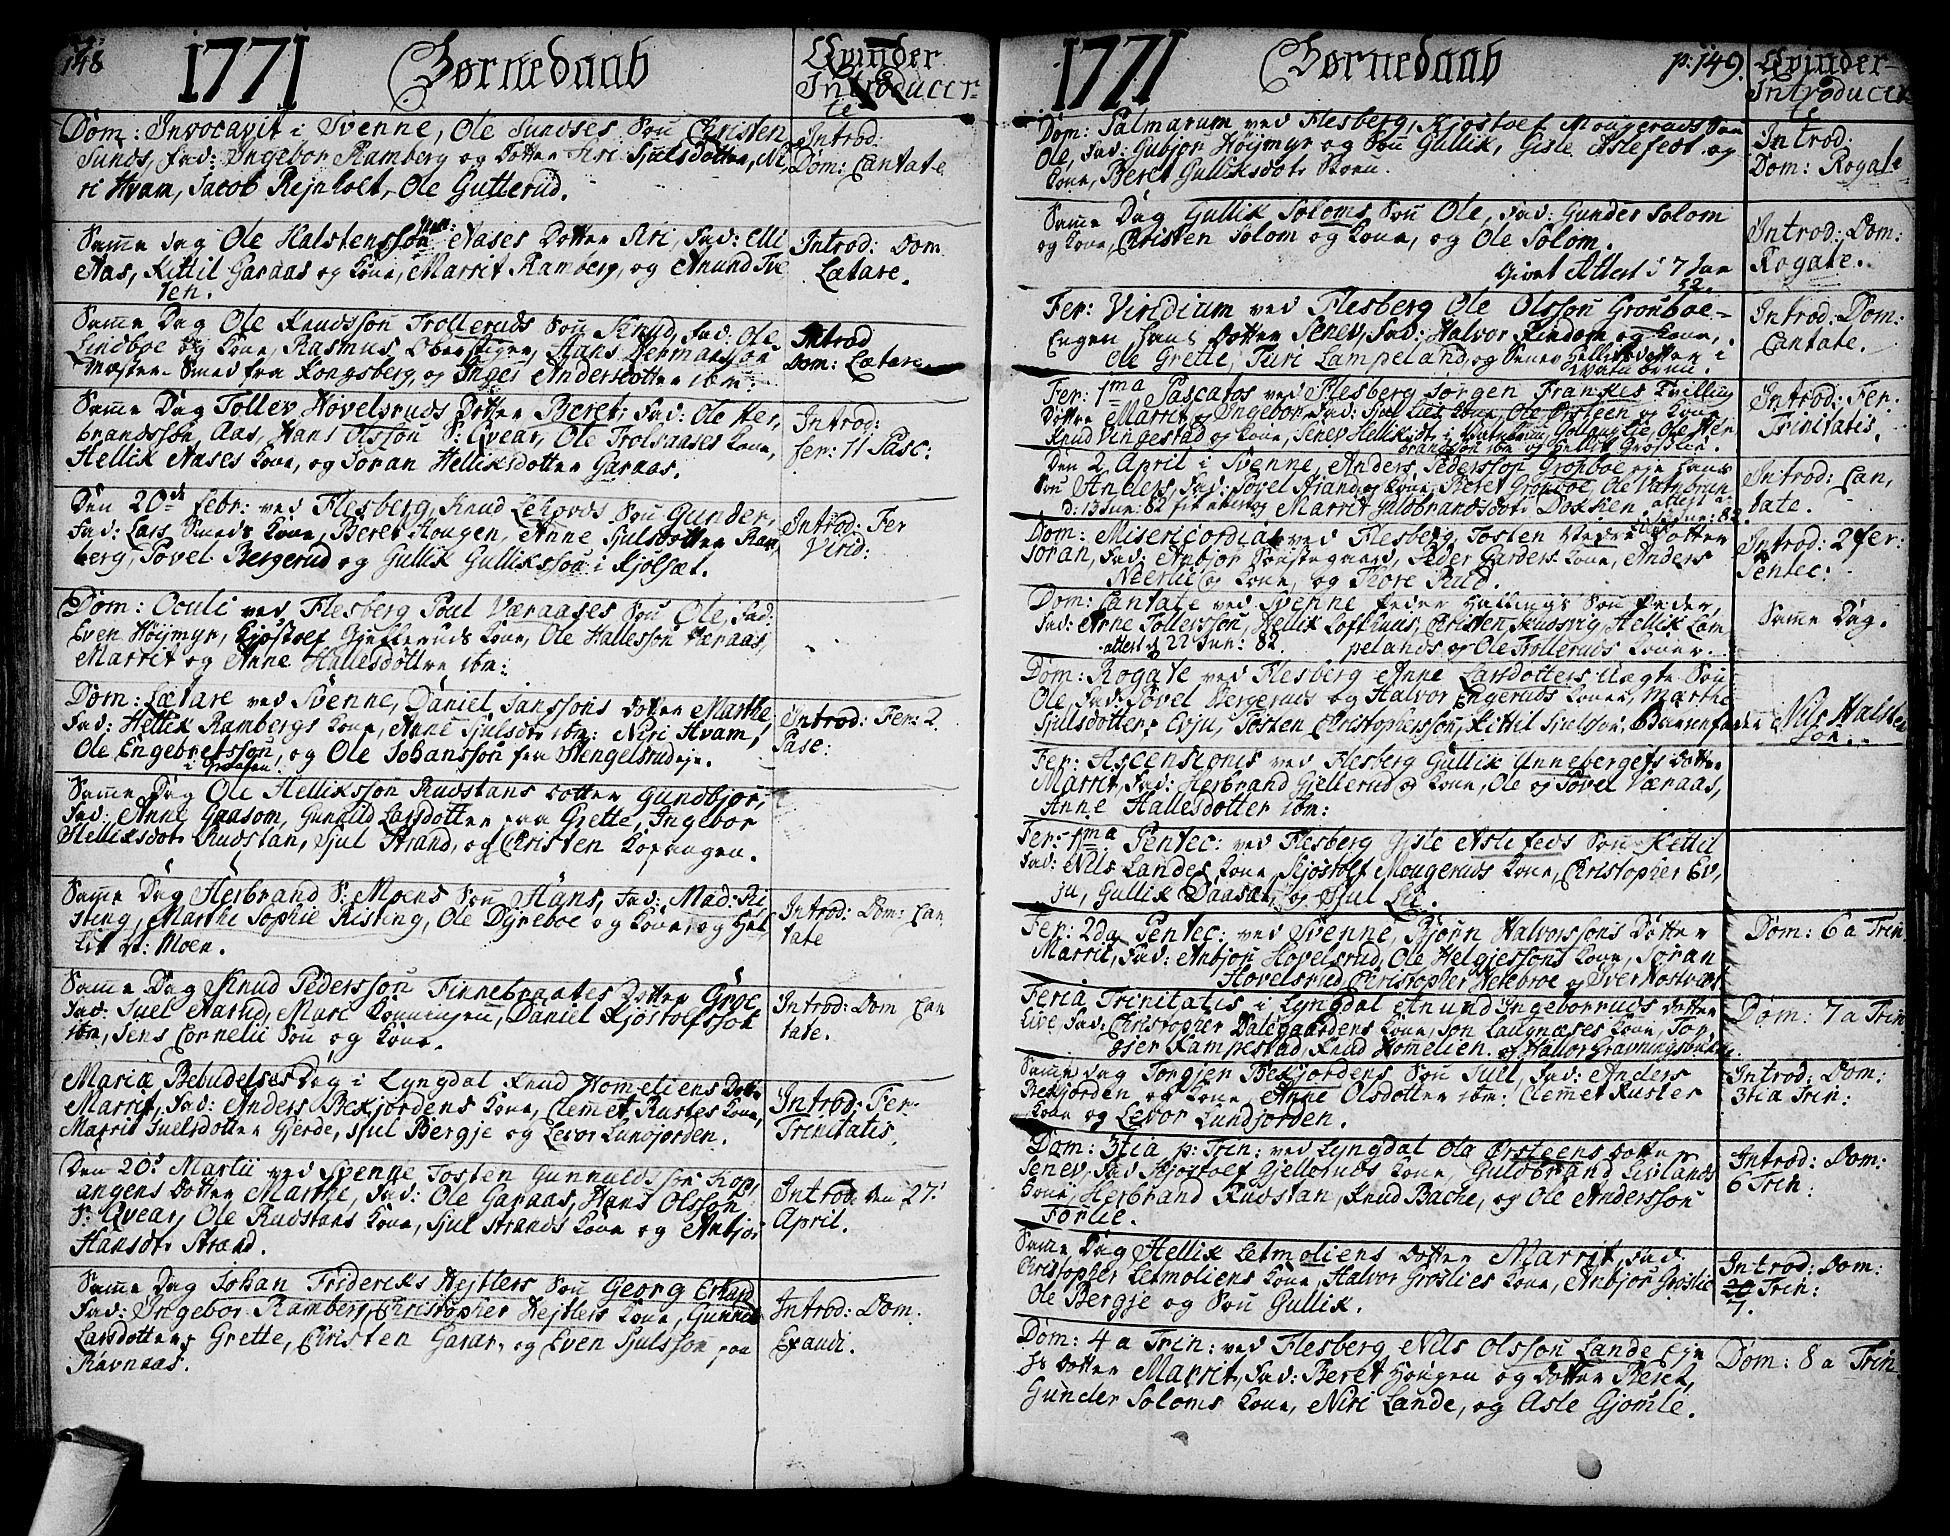 148
1771 Børnedaab
Qvinder
Introducer-
te
Dom: Invocavit i Svenne, Ole Sundses Søn Christen
Sunds, Fad: Ingebor Ramberg og Dotter Siri Sjulsdotter, Ni,
ri Hvam, Jacob Rejnholt, Ole Gutterud.
Introd:
Dom: Cantate
Samme dag Ole Halstenssøn Aases Dotter Siri, Fad: Elli
Aas, Kittil Garaas og Kone, Marrit Ramberg, og Anund Tve
ten.
Introd: Dom
Lætare.
Samme Dag Ole Knudssøn Trolleruds Søn Knud, Fad: Ole
Lindboe og Kone, Rasmus Oberstiger, Hans Hermanssøn
Mester-Smed fra Kongsberg, og Inger Andersdotter ibm:
Introd
Dom: Lætare.
Samme Dag Tollev Hovelsruds Dotter Beret: Fad: Ole Her,
brandssøn, Aas, Hans Olssøn S: Qvear, Ole Trolsaases Kone,
Hellik Aases Kone, og Joran Helliksdotter Garaas.
Introd:
fer: 11 Pasc:
Den 20de febr: ved Flesberg, Knud Søn Gunder,
Fad: Lars Smeds Kone, Beret Hougen, Anne Sjulsdotter Ram,
berg, Tovel Bergerud og Gullik Gullikssøn i Kjølset.
Introd: Fer
Virid:
Dom: Oculi ved Flesberg Poul Væraases Søn Ole, Fad:
Even Høijmyr, Kjøstolf Gjelleruds Kone, Ole Hallessøn Væraas,
Marrit og Anne Hallesdottre ibm:
Dom: Lætare ved Svenne, Daniel Janssøns Dotter Marthe,
Fad: Hellik Rambergs Kone, Anne Sjulsdotr ibm: Niri Hvam,
Ole Engebretssøn, og Ole Johanssøn fra Stengelsrudeje.
Introd: Fer: 2
Pasc:
Samme Dag Ole Hellikssøn Rudstans Dotter Gundbjør,
Fad: Anne Gaasom, Gunnild Larsdotter paa Grette, Ingebor
Helliksdotr Rudstan, Sjul Strand, og Christen Kopangen.
Samme Dag Herbrand S: Moens Søn Hans, Fad: Mad: Ri
sting, Marthe Sophie Risting, Ole Dyreboe og Kone, og Hel,
lik V: Moen.
Introd: Dom: Can
tate
Samme Dag Knud Pederssøn Finnebraates Dotter Groe
Fad: Juel Aarud, Mari Konningen, Daniel Kjøstolfssøn
ibm, Jens Cornelii Søn og Kone.
Introd: Dom Can
tate.
Mariæ Bebudelses Dag i Lyngdal Knud Homeliens Dotter
Marrit, Fad: Anders Bekjordens Kone, Clemet Rustes Kone,
Marrit Juelsdotter Gjerde, Sjul Bergje og Levor Lundjorden.
Introd: Fer:
Trinitatis.
Den 20d Martii ved Svenne Tosten Gunnuldssøn Kop,
angens Dotter Marthe, Fad: Ole Garaas, Hans Olssøn
S: Qvear, Ole Rudstans Kone, Sjul Strands Kone og Anbjør
Hansdotr Strand.
Introd den 27d
April.
Samme Dag Johan Fridericks Hejtlers Søn Georg Erhard
Fad: Ingebor Ramberg, Christopher Hejtlers Kone, Gunnil
Larsdotter Grette, Christen Garaas, og Even Sjulssøn paa
Ravnaas.
Introd: Dom:
Exaudi.
1771 Børnedaab p: 149.
Qvinder
Introducer
te
Dom: Palmarum ved Flesberg, Kjøstolf Mougeruds Søn
Ole, Fad: Gubjør Høijmyr og Søn Gullik, Gisle Aslefedt og
Kone, Beret Gulliksdotr Skoeu.
Introd:
Dom: Rogate
Samme Dag Gullik Soloms Søn Ole, Fad: Gunder Solom
og Kone, Christen Solom og Kone, og Ole Solom.
Givet Attest d 7 Jan
82.
Introd: Dom:
Rogate.
Fer: Viridium ved Flesberg Ole Olssøn Gronboe-
Engen hans Dotter Jenev, Fad: Halvor Kindom og Kone,
Ole Grette, Turi Lampeland, og Jenev Helliksdotter i
Vatnbrun.
Introd: Dom:
Cantate.
Fer: 1ma Pascatos ved Flesberg Jørgen Frankes Tvilling
Dottre Marrit og Ingebor, Fad: Sjul Lies Kone, Ole Ørsteen og Kone,
Knud Vingestad og Kone, Jenev Helliksdotr i Vatnbrun, Lie, Ole Her
brandssøn ibm og Hellik Groslie.
Introd: Fer.
Trinitatis.
Den 2 April i Svenne, Anders Pederssøn Gronboe eje hans
Søn Anders, Fad: Tovel Strand og Kone, Beret Gronboe, Ole Vatnbrun
og Marrit Guldbrandsdotr Dokken.
Introd: Can,
tate.
Dom: Misericordias ved Flesberg, Tosten Dotter
Joran, Fad: Anbjør Peder Garders Kone, Anders
Neerlie og Kone, og Thore Ruud.
Introd: 2 fer:
Pentec:
Dom: Cantate ved Svenne Peder Hallings Søn Peder,
Fad: Arne Tollefssøn, Hellik Lofthuus, Christen Hellik Lam,
attest d 22 Jun: 82. pelands og Ole Trolleruds Koner.
Samme Dag.
Dom: Rogate ved Flesberg Anne Larsdotters Uægte Søn
Ole, Fad: Tovel Bergeruds og Halvor Engeruds Koner, Marthe
Sjulsdotter Evju, Tosten Christopherssøn, Kittil Sjulssøn, Barnefader Nils Halsten
søn.
Fer: Ascensionis ved Flesberg Gullik Unnebergets Dotter
Marrit, Fad: Herbrand Gjellerud og Kone, Ole og Tovel Væraas,
Anne Hallesdotter ibm:
Fer: 1ma Pentec: ved Flesberg Gisle Aslefeds Søn Kettil
Fad: Nils Landes Kone, Kjøstolf Mougeruds Kone, Christopher Ev,
ju, Gullik Daaset, og Sjul Lie.
Fer: 2da Pentec: ved Svenne, Bjørn Halvorssøns Dotter
Marrit, Fad: Anbjør Hovelsrud, Ole Helgjessøns Kone, Joran
Hovelsrud, Christopher Heleboe og Iver
Dom: 6 a Trin
Feria Trinitatis i Lyngdal Anund Ingeborruds Dotter
Live, Fad: Christopher Dalsgaardens Kone, Jon Langnæses Kone, Tor,
gjer Kampestad, Knud Homelien. og Halvor
Dom: 7 a Trin
Samme Dag Torgjer Bekjordens Søn Juel, Fad: Anders
Bekjorden og Kone, Anne Olsdotter ibm: Clemet Rustes
Kone og Levor Lundjorden.
Introd: Dom:
3tia Trin:
Dom: 3tia p: Trin: ved Lyngdal Ola Ørsteens Dotter
Jenev, Fad Kjøstolf Gjelleruds Kone, Guldbrand Livlands
Kone, Herbrand Rudstan, Knud Bache, og Ole Anderssøn
Forlie.
Introd: Dom:
6 Trin:
Samme Dag Hellik Letmoliens Dotter Marrit, Fad:
Christopher Letmoliens Kone, Halvor Groslies Kone, Anbjør Groslie
Ole Bergje og Søn Gullik.
Introd: Dom:
Trin:
7.
Dom: 4 a Trin: ved Flesberg Nils Olssøn Lande eje
hs Dotter Marrit, Fad: Beret Hougen og Dotter Beret,
Gunder Soloms Kone, Niri Lande, og Asle Gjomle.
Dom: 8 a Trin